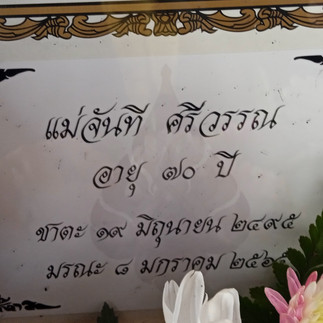 แม่จันที ศรีวรรณ
อายุ ๗๐ ปี
ชาตะ ๑๙ มิถุนายน ๒๔๙๕
มรณะ ๘ มกราคม